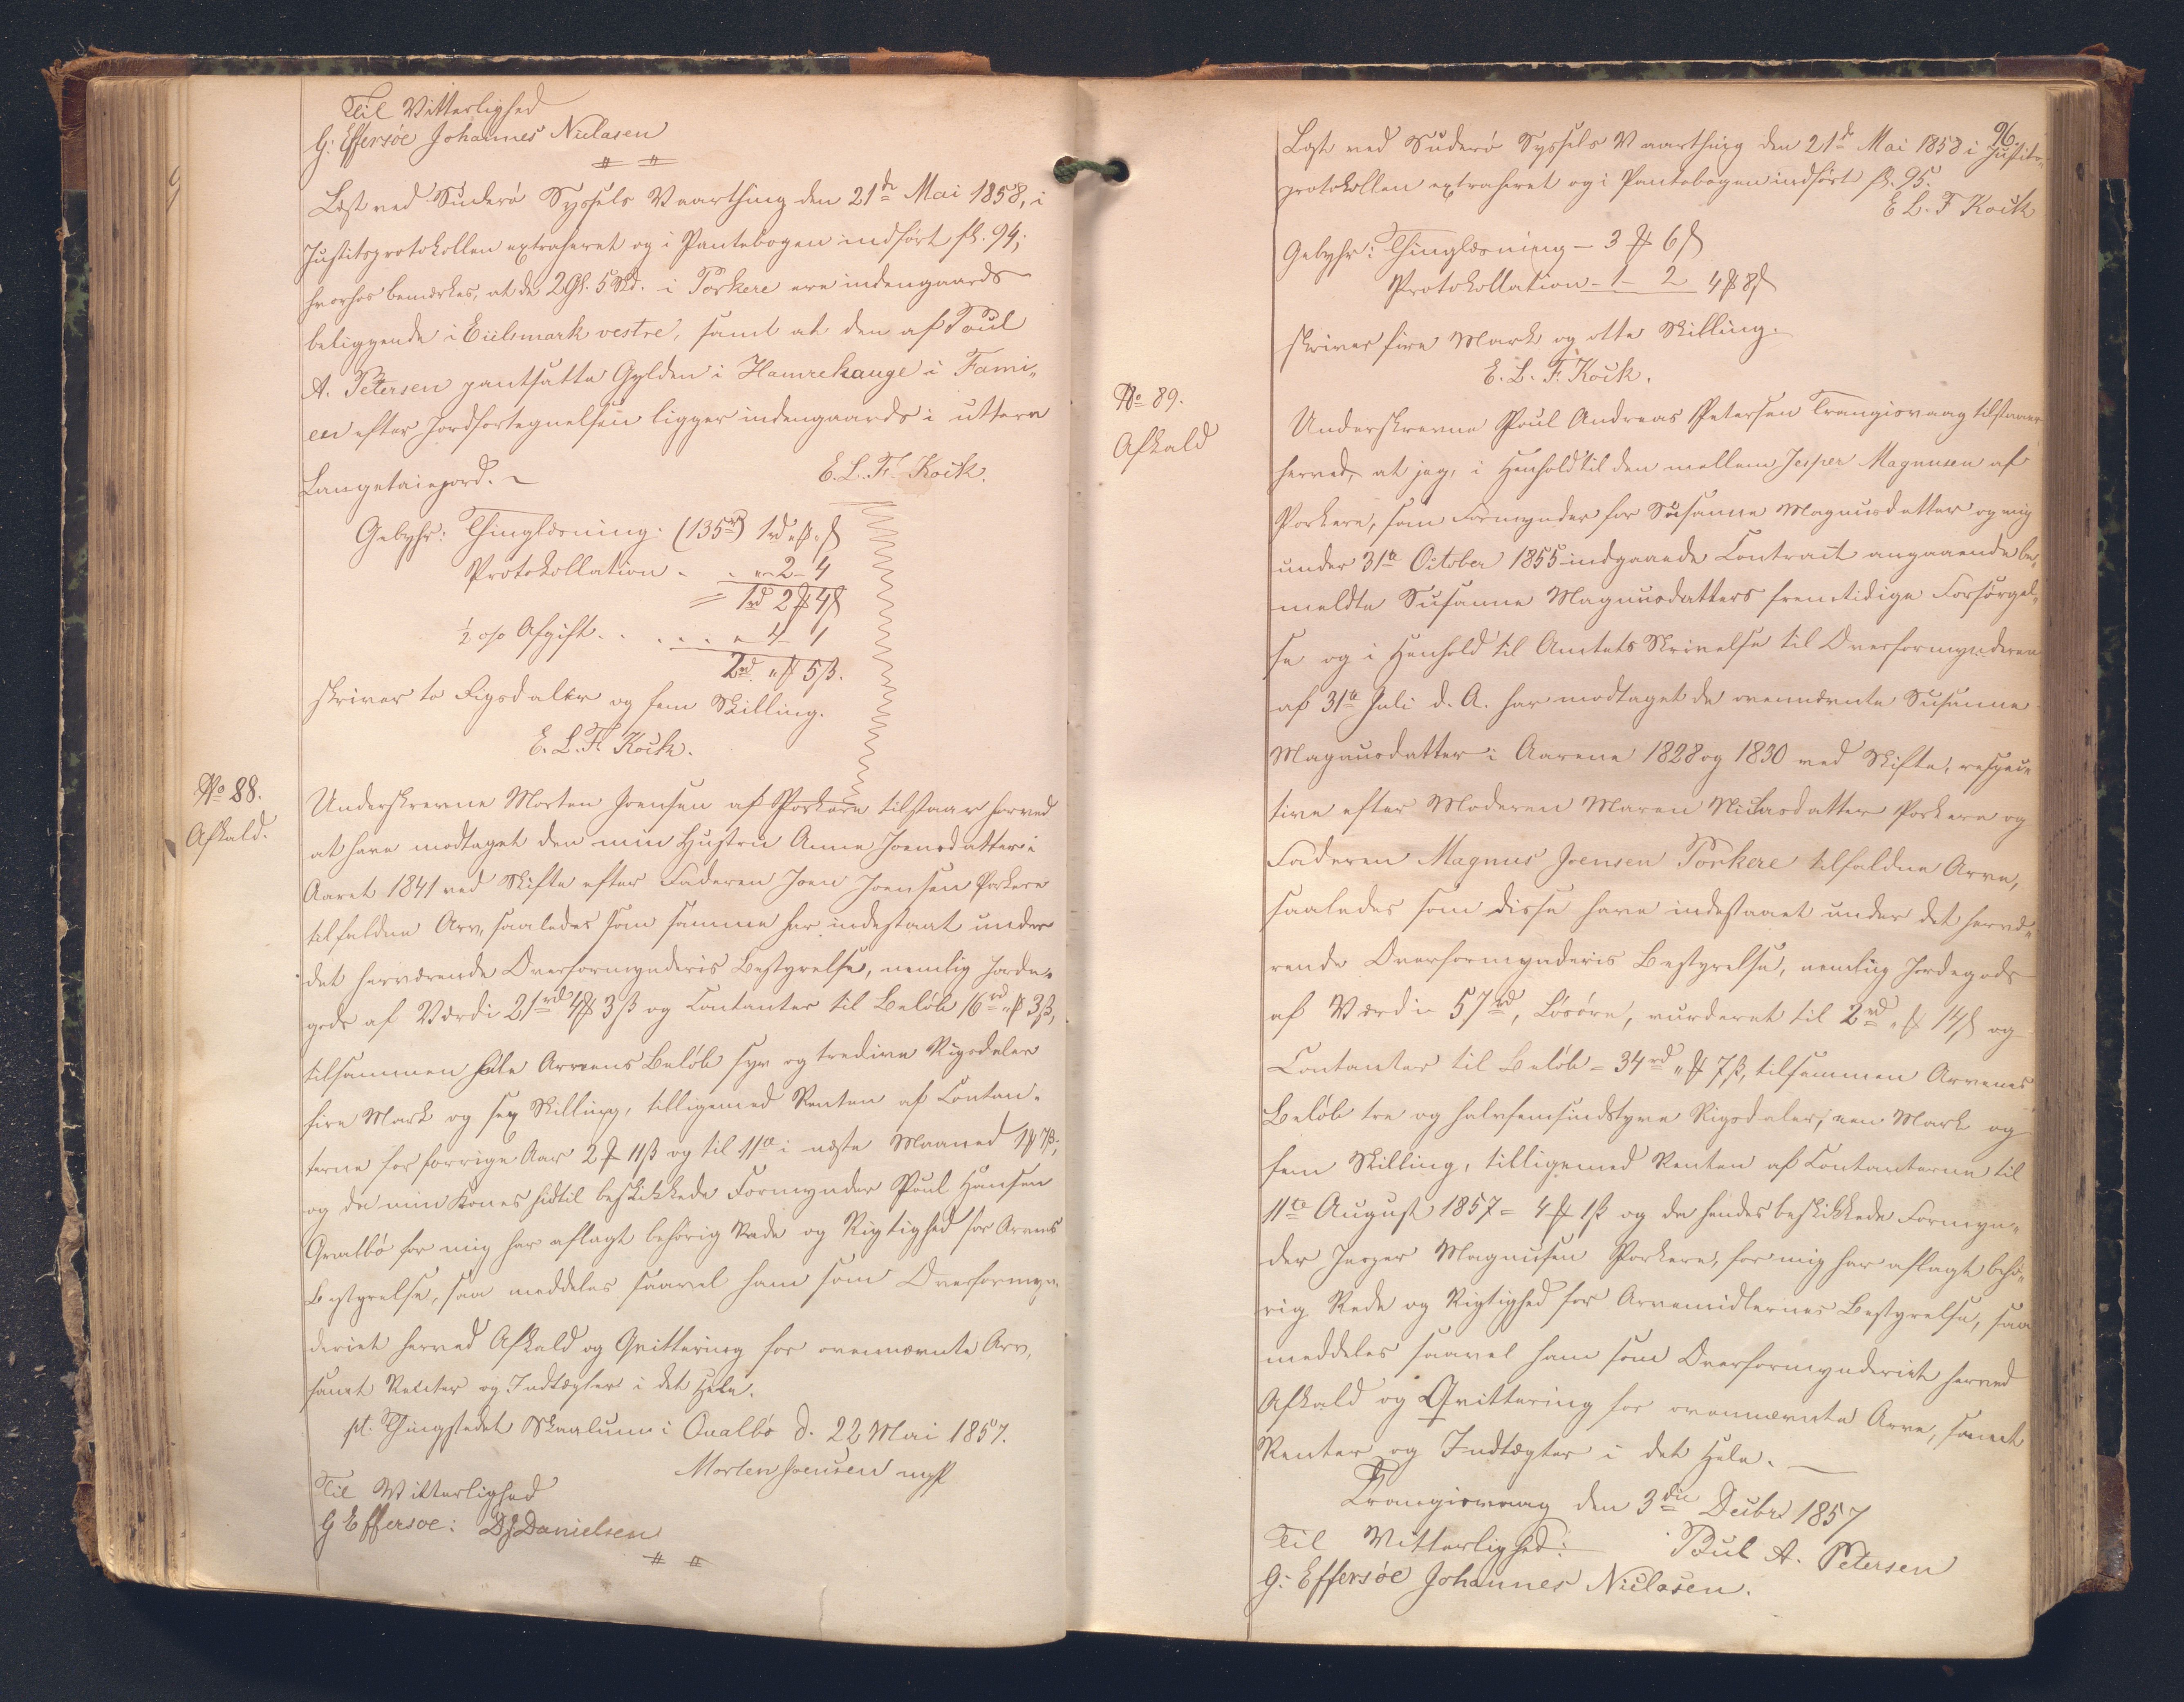 Til Vitterlighed
G: Effersöe Johannes Niclasen
Læst ved Suderö Syssels Vaarthing den 21de Mai 1858, i
Justitsprotokollen extraheret og i Pantebogen indført fol. 94;
hvorhos bemærkes, at de 2 Gl. 5 Skd. i Porkere ere indengaards
beliggende i Eiilsmark vestre, samt at den af Poul
A. Petersen pantsatte Gylden i Hamrehauge i Fami„
en efter Jordfortegnelsen ligger indengaards i uttere
Langetaiegord.
E. L. F. Kock.
Gebyhr: Thinglæsning: (135rd) 1rd „ß „ß
Protokollation . . „ - 2 - 4
= 1rd 2 # 4 ß
½ o/o Afgift . . . . . „ 4 1
2rd „ # 5 ß.
skriver to Rigsdaler og fem Skilling.
E. L. F. Kock.
No 88.
Afkald.
Underskrevne Morten Joensen af Porkere tilstaar herved
at have modtaget den min Hustru Anne Joensdatter i
Aaret 1841 ved Skifte efter Faderen Joen Joensen Porkere
tilfaldne Arv, saaledes som samme har indestaaet under
det herværende Overformynderis Bestyrelse, nemlig Jorde„
gods af Værdi 21rd 4 # 3 ß og Contanter til Beløb 16rd „ # 3 ß,
tilsammen hele Arvens Beløb syv og tredive Rigsdaler
fire Mark og sex Skilling, tilligemed Renten af Contan„
terne for forrige Aar 2 # 11 ß og til 11te i næste Maaned 1 # 7 ß;
og da min Kones hidtil beskikkede Formynder Poul Hansen
Qvalbö for mig har aflagt behörig Rede og Rigtighed for Arvens
Bestyrelse, saa meddeles saavel ham som Overformyn„
deriet herved Afkald og Qvittering for ovennævnte Arv,
samt Renter og Indtægter i det Hele.
pt. Thingstedet Skaalum i Qualbö d. 22 Mai 1857.
Morten Joensen mp
Til Vitterlighed
G Effersoe: DJDanielsen
96.
Læst ved Suderö Syssels Vaarthing den 21de Mai 1858 i Justits„
protokollen extraheret og i Pantebogen indført fol. 95.
E L. F Kock
Gebyhr: Thinglæsning - 3 # 6 ß
Protokollation - 1 - 2 4 # 8 ß
skriver fire Mark og otte Skilling.
E. L. F. Kock.
No 89.
Afkald
Underskrevne Poul Andreas Petersen Trangisvaag tilstaaer
herved, at jeg, i Henhold til den mellem Jesper Magnusen af
Porkere, som Formynder for Susanne Magnusdatter og mig
under 31te October 1855 indgaaede Contract angaaende be„
meldte Susanne Magnusdatters fremtidige Forsörgel„
se og i Henhold til Amtets Skrivelse til Overformynderen
af 31te Juli d. A. har modtaget de ovennævnte Susanne
Magnusdatter i Aarene 1828 og 1830 ved Skifte, respec„
tive efter Moderen Maren Niclasdatter Porkere og
Faderen Magnus Joensen Porkere tilfaldne Arve,
saaledes som disse have indestaaet under det hervæ„
rende Overformynderis Bestyrelse, nemlig Jordegods
af Værdie 57rd, Lösöre, vurderet til 2rd „ # 14 ß og
Contanter til Beløb = 34rd „ # 7 ß, tilsammen Arvenes
Beløb tre og halvfemsindstyve Rigsdaler, een Mark og
fem Skilling, tilligemed Renten af Contanterne til
11te August 1857 = 4 # 1 ß og da hendes beskikkede Formyn„
der Jesper Magnusen Porkere, for mig har aflagt behö„
rig Rede og Rigtighed for Arvemidlernes Bestyrelse, saa
meddeles saavel ham som Overformynderiet herved
Afkald og Qvittering for ovennævnte Arve, samt
Renter og Indtægter i det Hele.
Trangisvaag den 3die Decbr 1857
Til Vitterlighed: Poul A. Petersen
G: Effersöe Johannes Niclasen.